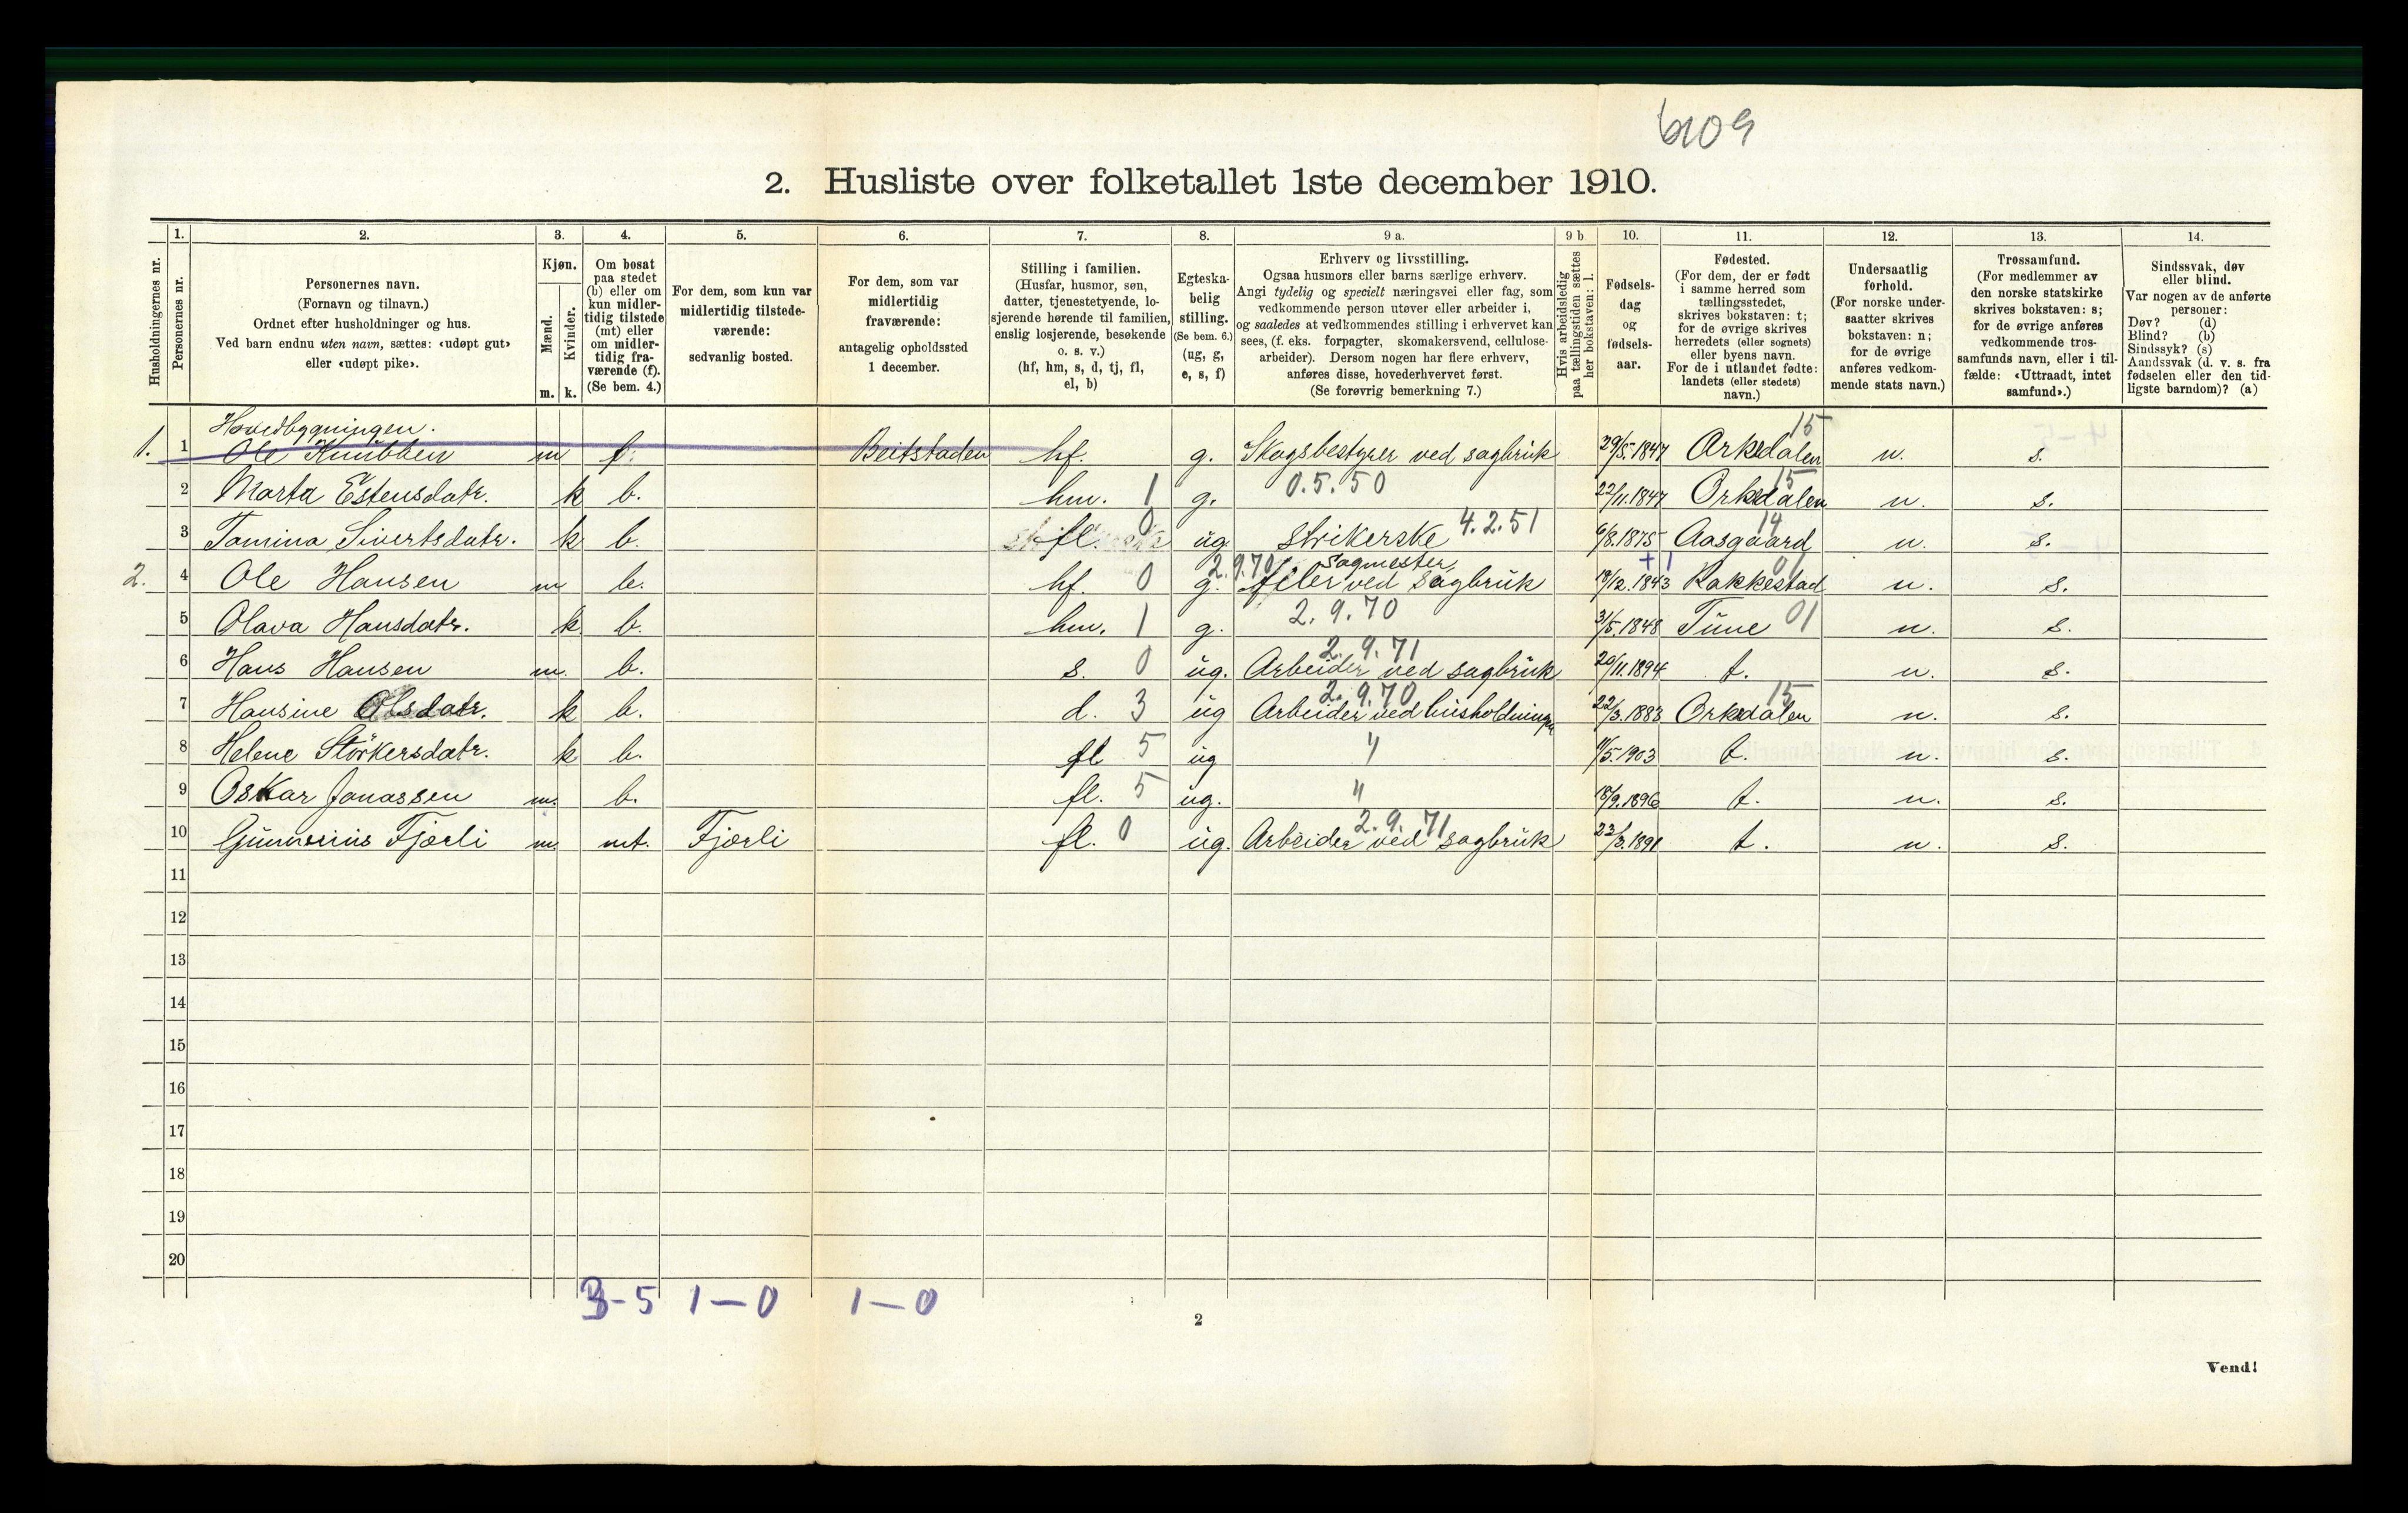 6109
2. Husliste over folketallet 1ste december 1910.
Husholdningernes nr.
1. Personernes nr.
2. Personernes navn.
(Fornavn og tilnavn.)
Ordnet efter husholdninger og hus.
Ved barn endnu uten navn, sættes: «udøpt gut»
eller «udøpt pike».
3. Kjøn.
Mænd. m.
Kvinder. k.
4. Om bosat
paa stedet
(b) eller om
kun midler-
tidig tilstede
(mt) eller
om midler-
tidig fra-
værende (f).
(Se bem. 4.)
5. For dem, som kun var
midlertidig tilstede-
værende:
sedvanlig bosted.
6. For dem, som var
midlertidig
fraværende:
antagelig opholdssted
1 december.
7. Stilling i familien.
(Husfar, husmor, søn,
datter, tjenestetyende, lo-
sjerende hørende til familien,
enslig losjerende, besøkende
o. s. v.)
(hf, hm, s, d, tj, fl,
el, b)
8. Egteska-
belig
stilling.
(Se bem. 6.)
(ug, g,
e, s, f)
9 a. Erhverv og livsstilling.
Ogsaa husmors eller barns særlige erhverv.
Angi tydelig og specielt næringsvei eller fag, som
vedkommende person utøver eller arbeider i,
og saaledes at vedkommendes stilling i erhvervet kan
sees, (f. eks. forpagter, skomakersvend, cellulose-
arbeider). Dersom nogen har flere erhverv,
anføres disse, hovederhvervet først.
(Se forøvrig bemerkning 7.)
9 b Hvis arbeidsledig
paa tællingstiden sættes
her bokstaven: l.
10. Fødsels-
dag
og
fødsels-
aar.
11. Fødested.
(For dem, der er født
i samme herred som
tællingsstedet,
skrives bokstaven: t;
for de øvrige skrives
herredets (eller sognets)
eller byens navn.
For de i utlandet fødte:
landets (eller stedets)
navn.)
12. Undersaatlig
forhold.
(For norske under-
saatter skrives
bokstaven: n;
for de øvrige
anføres vedkom-
mende stats navn.)
13. Trossamfund.
(For medlemmer av
den norske statskirke
skrives bokstaven: s;
for de øvrige anføres
vedkommende tros-
samfunds navn, eller i til-
fælde: «Uttraadt, intet
samfund».)
14. Sindssvak, døv
eller blind.
Var nogen av de anførte
personer:
Døv? (d)
Blind? (b)
Sindssyk? (s)
Aandssvak (d. v. s. fra
fødselen eller den tid-
ligste barndom)? (a)
Hovedbygningen. 15
1. 1 Ole Knubben m f. Beitstaden hf. g. Skogsbestyrer ved sagbruk 29/5 1847 Arkedalen n. s.
0.5.50 15
2 Marta Estensdatr. k b. hm. 1 g. 22/11.1847 Orkedalen n. s.
0 4.2.51 14
3 Tomina Sivertsdatr. k b. fl. ug strikerske 6/8.1875 Aasgaard n. s.
2.9.70 Sagmester +1 01
2. 4 Ole Hansen m b. hf. 0 g. filer ved sagbruk 18/12.1843 Rakkestad n. s.
2.9.70
5 Olava Hansdatr. k. b. hm. 1 g. 31/5.1848 Tune 01 n. s.
2.9.71
6 Hans Hansen m. b. s. 0 ug. Arbeider ved sagbruk 20/11.1894 t. n. s.
2.9.70 15
7 Hansine Olsdatr. k b. d. 3 ug Arbeider ved husholdningen 22/3.1883 Orkedalen n. s.
8 Helene Störkersdatr. k b. fl 5 ug " 11/5.1903 t. n. s.
9 Oskar Jonassen m. b. fl. 5 ug. " 18/9.1896 t. n. s.
2.9.71
10 Gunnerius Fjærli m. mt. Fjærli fl. 0 ug. Arbeider ved sagbruk 23/3.1891 t. n. s.
11
12
13
14
15
16
17
18
19
20
3-5 1-0 1-0
2
Vend!